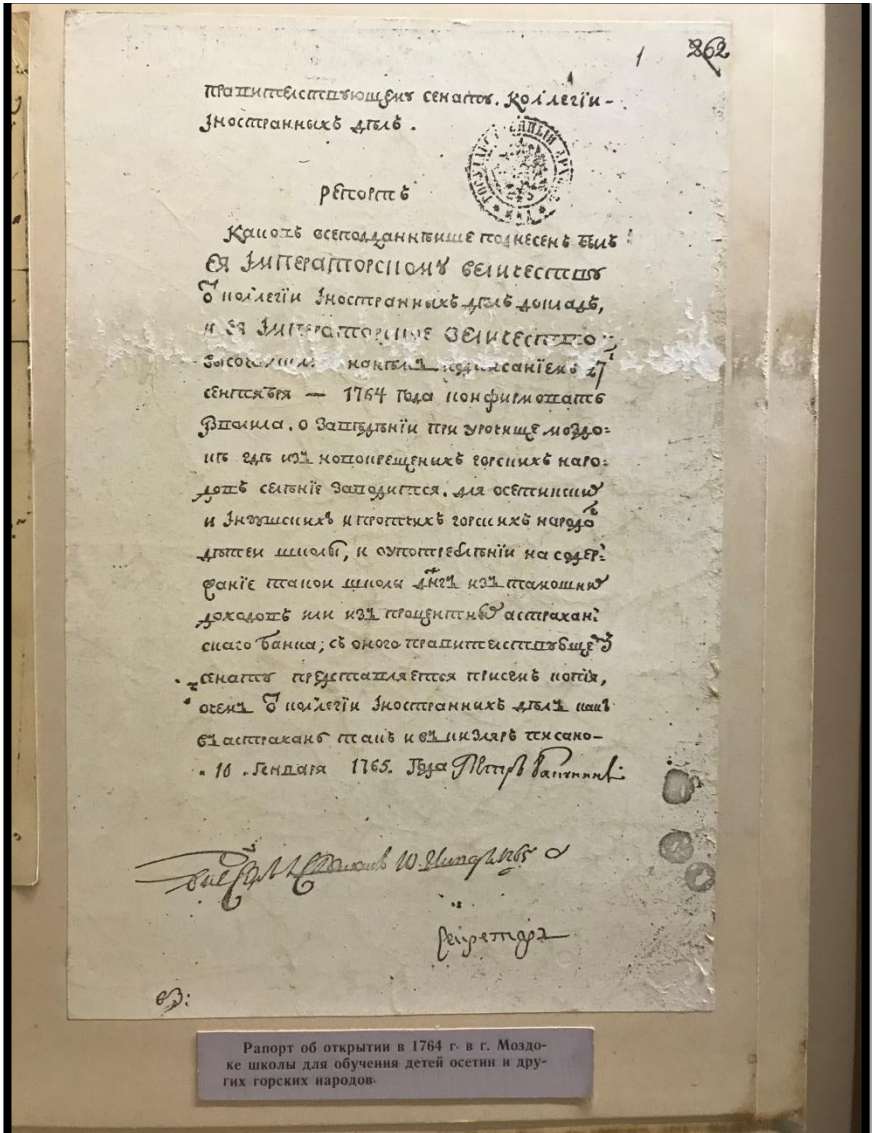 1 262
Правителствующему сенату. Коллегіи-
Іностранныхъ дѣлъ.
Репортъ
ГОСУДАРСТВЕННЫЙ АРХИВ
Каковъ всеподданнѣише поднесенъ былъ
ея Императорскому величеству
ѿ коллегіи Іностранныхъ дѣлъ докладъ,
и ея Императорское величество
подписаніемъ 27
сентября — 1764 года конфирмовать
изволила. о заведѣніи при урочище моздо=
кѣ гдѣ изъ новокрещеныхъ горскихъ наро=
довъ селѣніе заводится. для осетинских
и Ингушскихъ и протчихъ горскихъ народо
дѣтеи школы, и оупотреблѣніи на содер=
жаніе такои школы дѣнгъ изъ тамошних
доходовъ или изъ процентных астрахан=
скаго банка; съ оного правителствующему
сенату представляется присемъ копія,
очемъ ѿ коллегіи Іностранних дѣлъ какъ
въ астрахань такъ и въ кизляръ писано-
10 Генваря 1765. Года Петръ
1765
Секретарь
Рапорт об открытии в 1764 г. в г. Моздо-
ке школы для обучения детей осетин и дру-
гих горских народов.